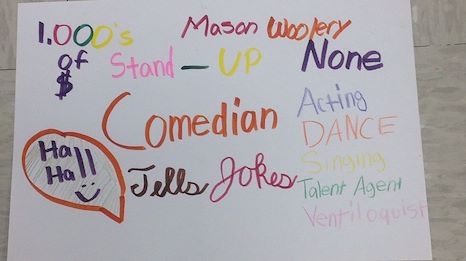 1.000's
of
$
Mason Woolery
Stand-UP
None
Comedian
Acting
DANCE
Singing
Talent Agent
Ventiloquist
Ha
Hall
Ha
Tells Jokes